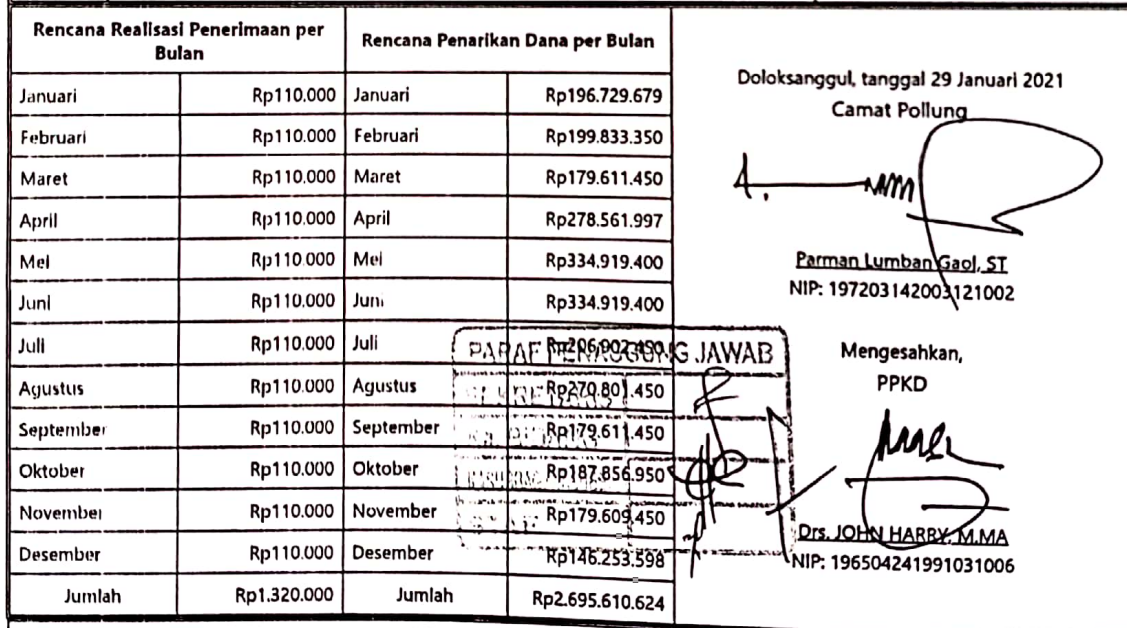 Rencana Realisasi Penerimaan per Bulan | Rencana Penarikan Dana per Bulan
Januari Rp110.000 Januari Rp196.729.679
Februari Rp110.000 Februari Rp199.833.350
Maret Rp110.000 Maret Rp179.611.450
April Rp110.000 April Rp278.561.997
Mei Rp110.000 Mei Rp334.919.400
Juni Rp110.000 Juni Rp334.919.400
Juli Rp110.000 Juli Rp206.902.450
Agustus Rp110.000 Agustus Rp270.801.450
September Rp110.000 September Rp179.611.450
Oktober Rp110.000 Oktober Rp187.856.950
November Rp110.000 November Rp179.609.450
Desember Rp110.000 Desember Rp146.253.598
Jumlah Rp1.320.000 Jumlah Rp2.695.610.624
Doloksanggul, tanggal 29 Januari 2021
Camat Pollung
Parman Lumban Gaol, ST
NIP: 197203142003121002
PARAF PENAGGUNG JAWAB
Mengesahkan,
PPKD
Drs. JOHN HARRY, M.MA
NIP: 196504241991031006